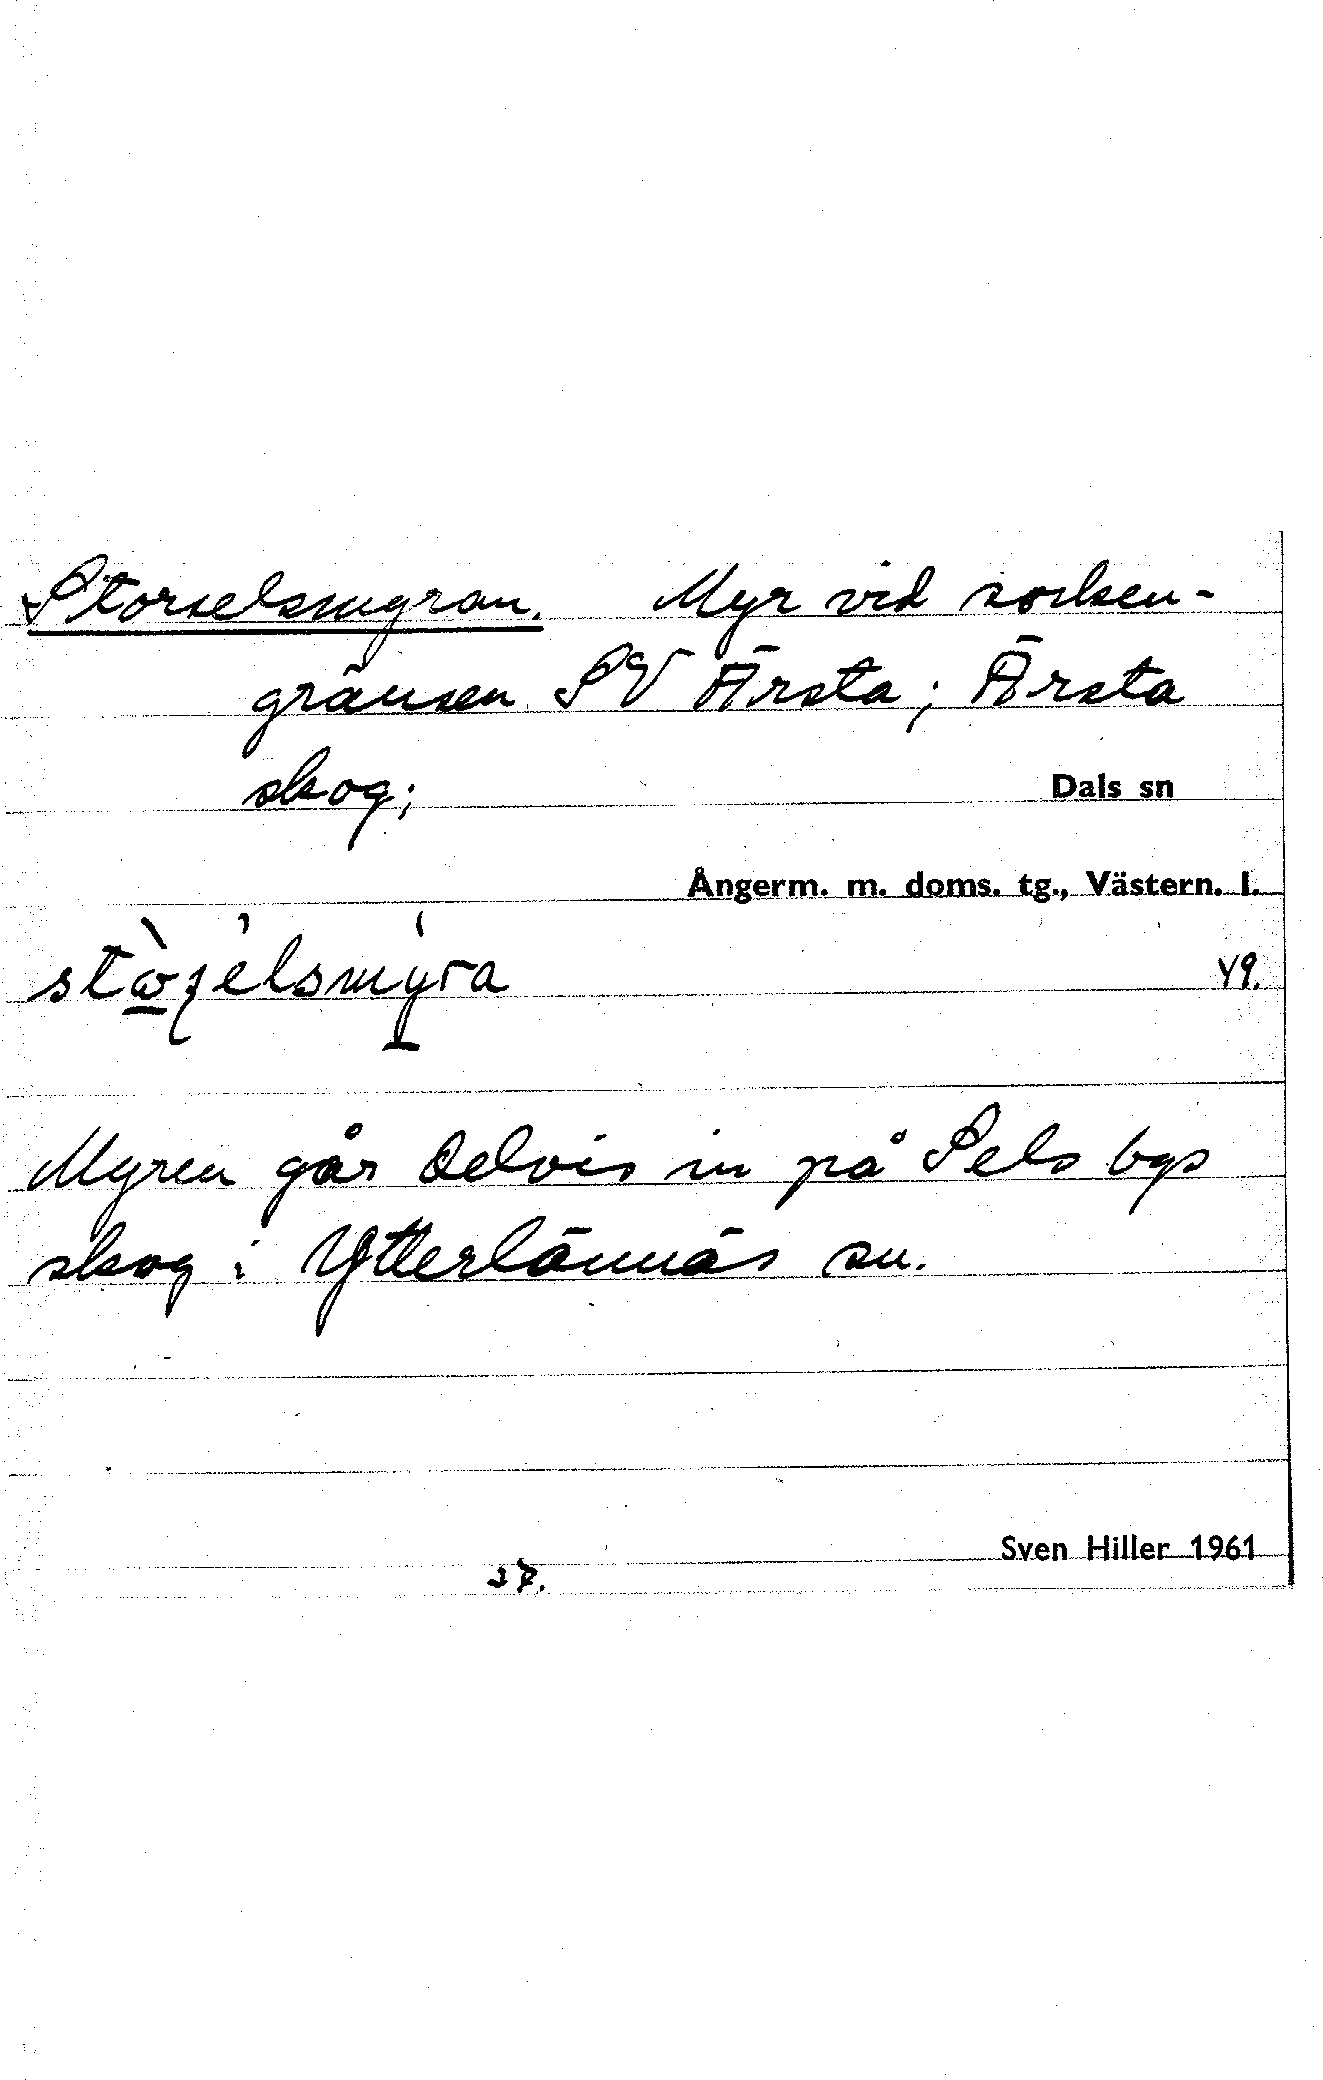 Storselsmyran. Myr vid socken-
gränsen SV Ärsta; Ärsta
skog; Dals sn
Ångerm. m. doms. tg., Västern. l.
49.
Myren går delvis in på Sels bys
skog i Ytterlännäs sn.
Sven Hiller 1961